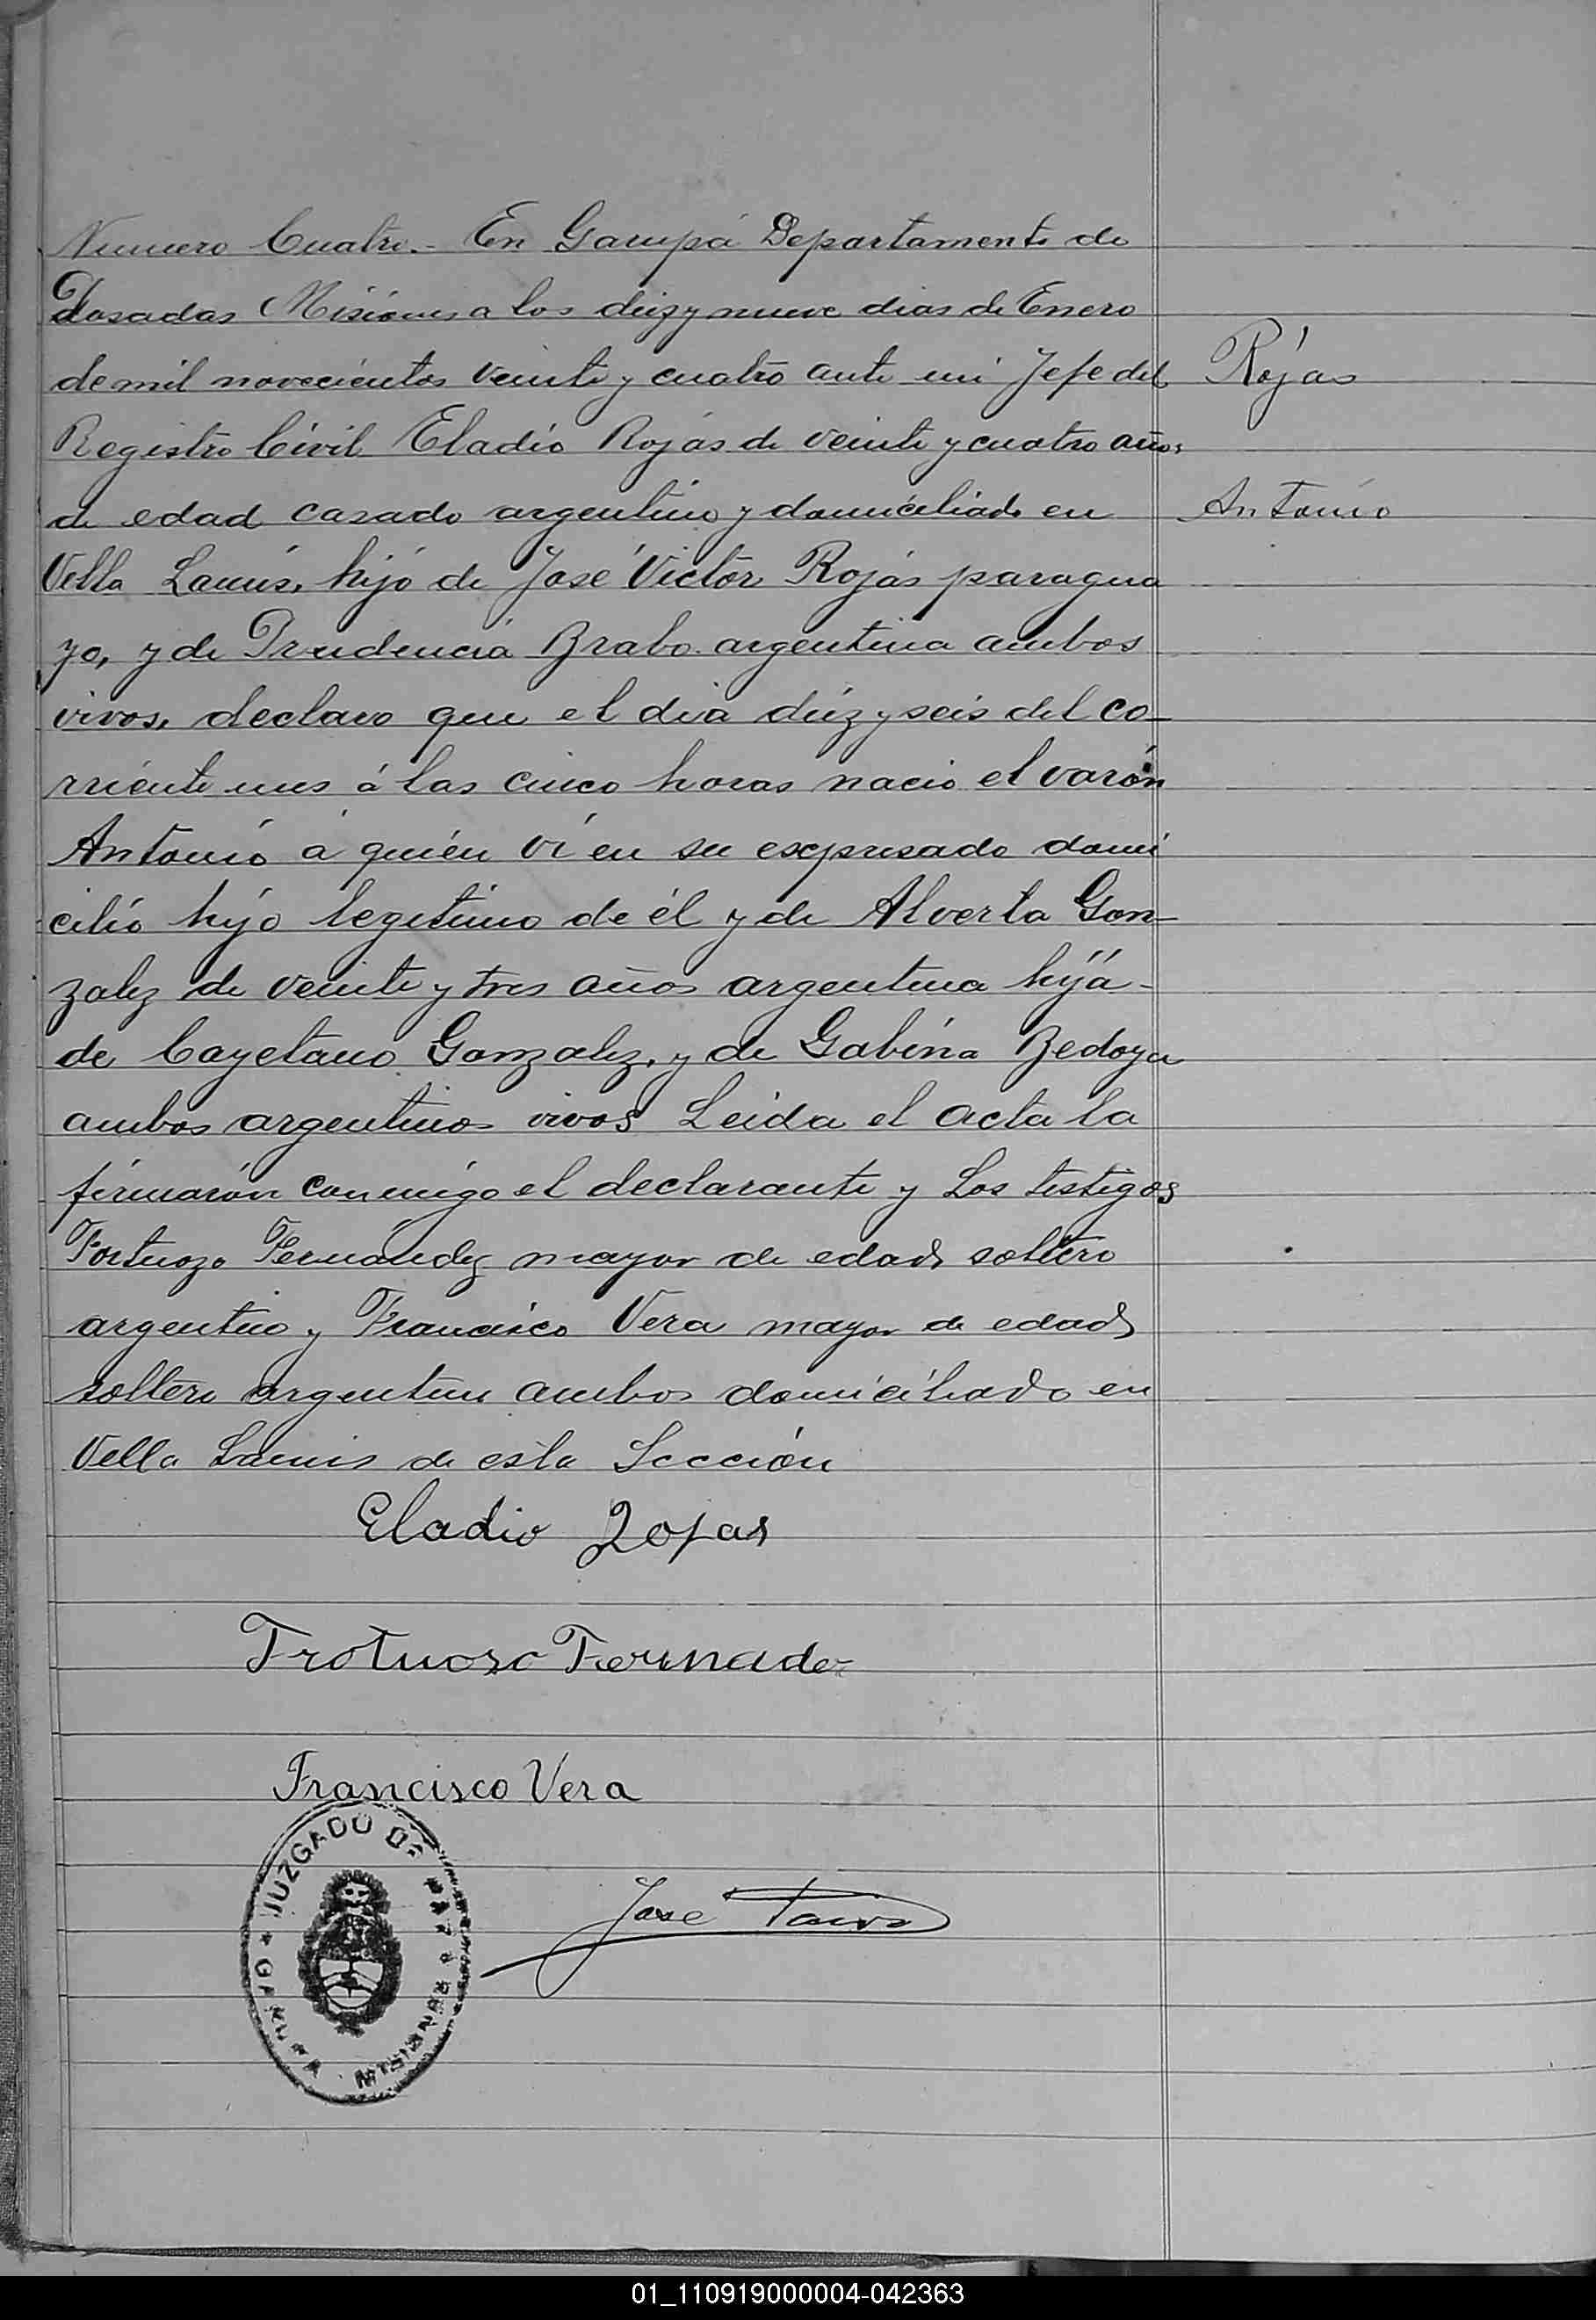 Numero Cuatro.- En Garupá Departamento de
Posadas Misiónes a los diez y nueve dias de Enero
de mil novecientos veinte y cuatro ante mi Jefe del
Rojas
Registro Civil Eladio Rojas de veinte y cuatro años
de edad casado argentino y domiciliado en
Antonio
Vella Lanus, hijo de José Victor Rojas paragua
yo, y de Prudencia Brabo argentina ambos
vivos, declaro que el dia diez y seis del co-
rriente mes á las cinco horas nacio el varón
Antonio á quién ví en su expresado domi
cilio hijo legitimo de él y de Alverta Gon-
zalez de veinte y tres años argentina hija-
de Cayetano Gonzalez, y de Gabina Bedoya
ambos argentinos vivos Leida el acta la
firmarón conmigo el declarante y Los testigos
Fortuozo Fernández mayor de edad soltero
argentino y Francisco Vera mayor de edad
soltero argentino ambos domiciliado en
Vella Lanus de esta Sección
Eladio Rojas
Frotuoso Fernadez
Francisco Vera
JUZGADO DE PAZ
Jose
GARUPA
MISIONES
01_110919000004-042363